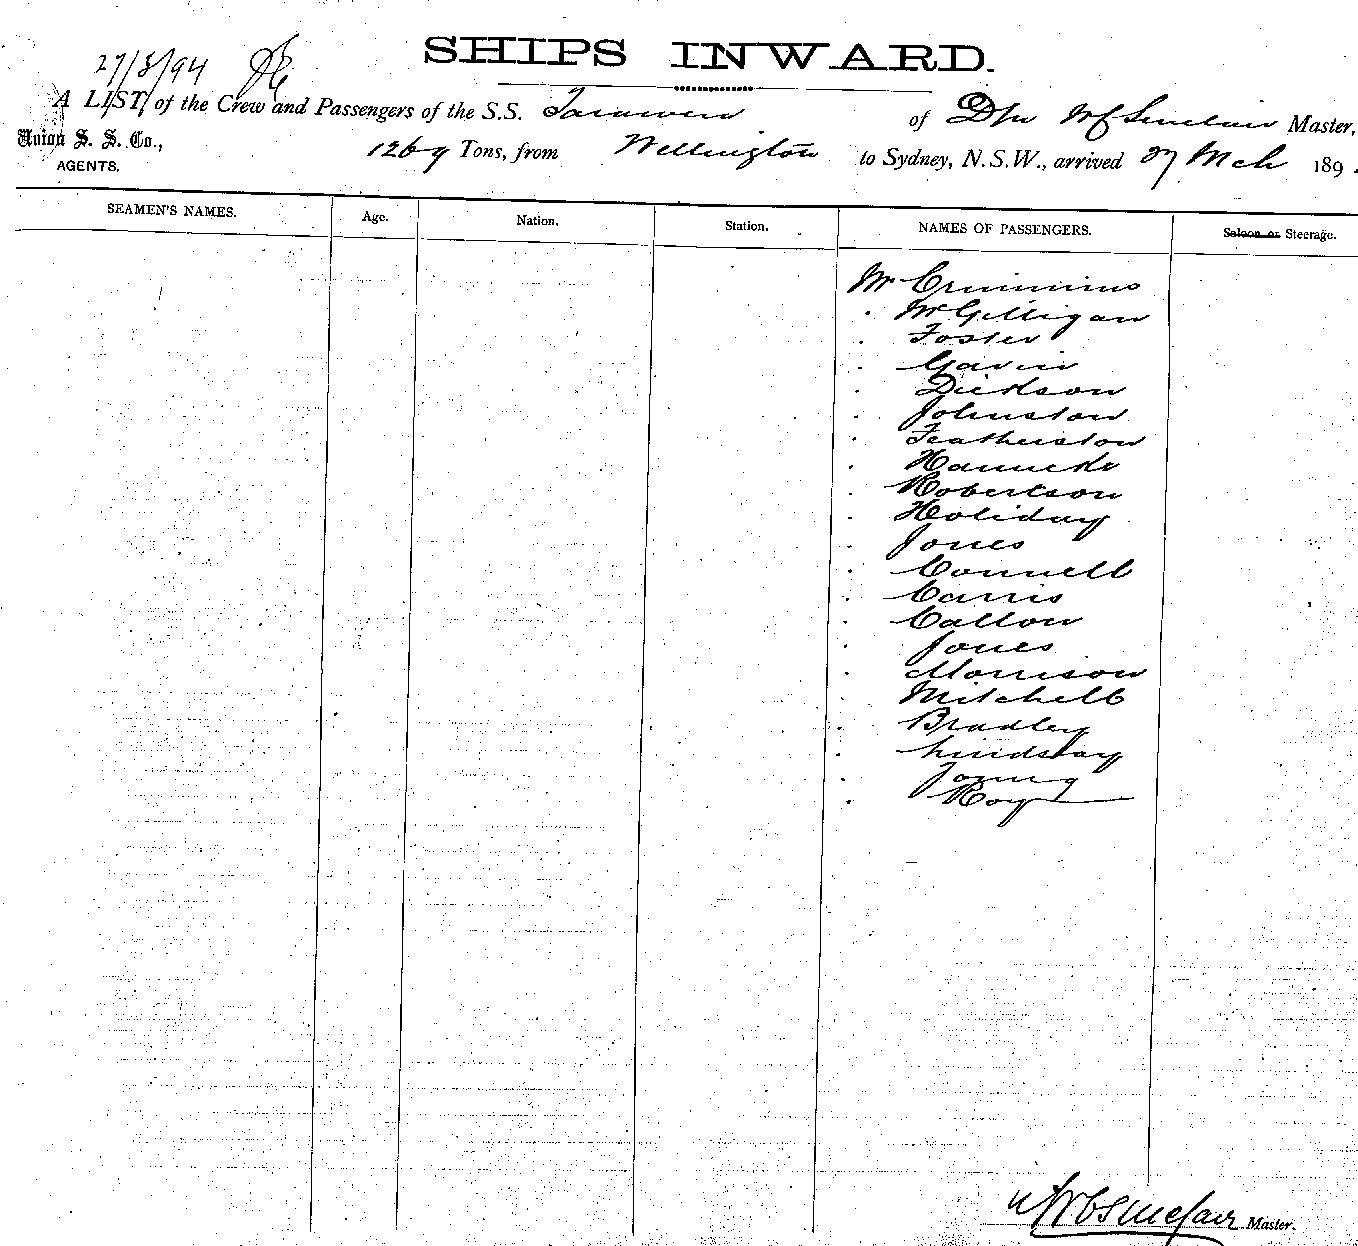 SHIPS INWARD.
27/3/94
A LIST, of the Crew and Passengers of the S.S. Tarawera of Dn Sinclair Master,
Union S. S. Co.,
AGENTS.
1269 Tons, from Wellington to Sydney, N.S.W., arrived 27 Mch 189
SEAMEN'S NAMES. Age. Nation. Station. NAMES OF PASSENGERS. Saloon or Steerage.
Mr Crimmins
. McGilligan
. Foster
. Gavin
. Dickson
. Johnston
. Featherston
.
. Robertson
. Holiday
. Jones
. Connell
. Carris
. Callow
. Jones
. Morrison
. Mitchell
. Bradley
. Lindsay
. Young
. Roy
Sinclair Master.